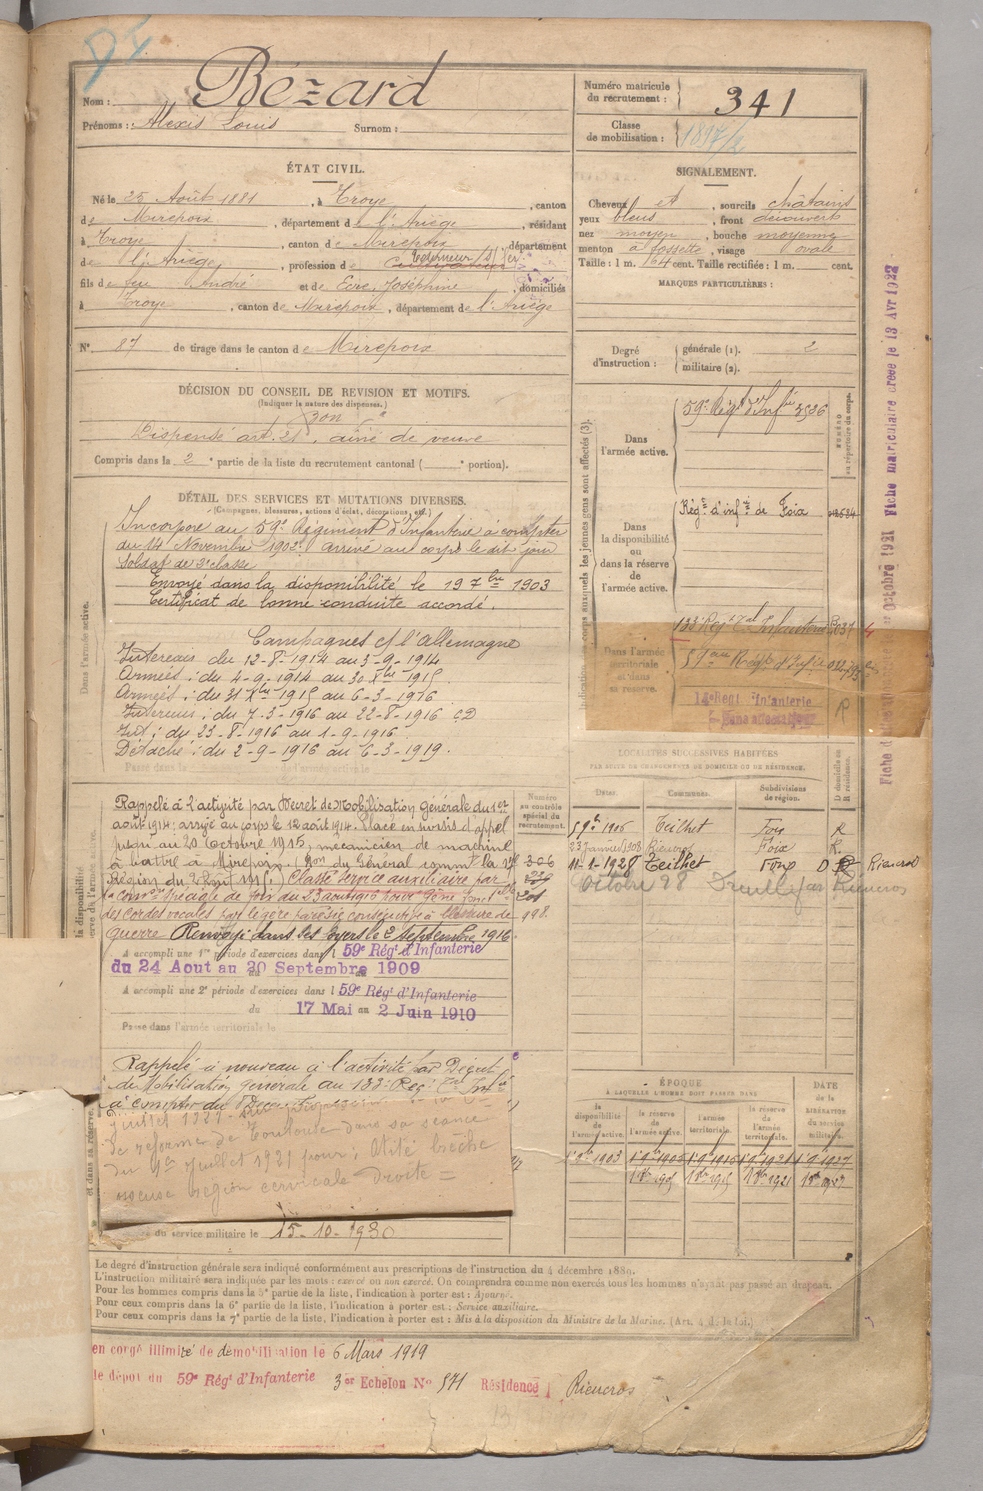 Nom : Bézard
Prénoms : Alexis Louis Surnom :
Numéro matricule du recrutement : 341
Classe de mobilisation : 1897/2
ÉTAT CIVIL.
Né le 25 Août 1881, à Troye, canton
de Mirepoix, département de l'Ariège, résidant
à Troye, canton de Mirepoix, département
de l'Ariège, profession de Cultivateur
fils de feu André et de Ecre, Joséphine, domiciliés
à Troye, canton de Mirepoix, département de l'Ariège
N° 87 de tirage dans le canton de Mirepoix
SIGNALEMENT.
Cheveux et, sourcils châtains
yeux bleus, front découvert
nez moyen, bouche moyenne
menton à fossette, visage ovale
Taille : 1 m. 64 cent. Taille rectifiée : 1 m. cent.
MARQUES PARTICULIÈRES :
Degré d'instruction : générale (1). 2
militaire (2).
DÉCISION DU CONSEIL DE REVISION ET MOTIFS.
(Indiquer la nature des dispenses.)
Bon
Dispensé art. 21, aîné de veuve
Compris dans la 2e partie de la liste du recrutement cantonal ( e portion).
DÉTAIL DES SERVICES ET MUTATIONS DIVERSES.
(Campagnes, blessures, actions d'éclat, décorations, etc.)
Incorporé au 59e Régiment d'Infanterie à compter
du 14 Novembre 1902. arrivé au corps le dit jour
Soldat de 2e classe
Envoyé dans la disponibilité le 19 7bre 1903
Certificat de bonne conduite accordé.
Campagnes c/ l'Allemagne
Intérieur du 12-8-1914 au 3-9-1914
Armées : du 4-9-1914 au 30 Xbre 1915
Armées : du 31 Xbre 1915 au 6-3-1916
Intérieur : du 7-3-1916 au 22-8-1916 CD
Int : du 23-8-1916 au 1-9-1916
Détaché : du 2-9-1916 au 6-3-1919.
Rappelé à l'activité par Décret de Mobilisation générale du 1er
août 1914 : arrivé au corps le 12 août 1914. Placé en sursis d'appel
jusqu'au 20 Octobre 1915, mécanicien de machine
à battre à Mirepoix. (Don du Général commt la 17e
Région du 2 Août 1915.) Classé service auxiliaire par
la comon spéciale de Foix du 23 août 1916 pour gêne fonctlle
des cordes vocales par légère parésie consécutive à blessure de
guerre Renvoyé dans ses foyers le 2 septembre 1916
A accompli une 1re période d'exercices dans l 59e Régt d'Infanterie
du 24 Aout au 20 Septembre 1909
A accompli une 2e période d'exercices dans l 59e Régt d'Infanterie
du 17 Mai au 2 Juin 1910
Passé dans l'armée territoriale le
Rappelé à nouveau à l'activité par Décret
de Mobilisation générale au 133e Reg. Tal Infie
à compter du
juillet 1921
de réforme de Toulouse dans sa séance
du 1er Juillet 1921 pour : Otité brèche
osseuse région cervicale droite =
du service militaire le 15-10-1930
Dans l'armée active. 59e Régt d'Infie 3536
Dans la disponibilité ou dans la réserve de l'armée active. Régt d'infie de Foix
Dans l'armée territoriale et dans sa réserve.
133 Regt Tal Infanterie
14e Régt Infanterie
Sans affectation
R
NUMÉRO au répertoire du corps.
Indication des corps auxquels les jeunes gens sont affectés (3).
LOCALITÉS SUCCESSIVES HABITÉES
PAR SUITE DE CHANGEMENTS DE DOMICILE OU DE RÉSIDENCE.
Numéro au contrôle spécial du recrutement.
Dates. Communes. Subdivisions de région. D domicile ou R résidence.
5 9bre 1906 Teilhet Foix R
23 janvier 1908 Rieucros Foix R.
11-1-1928 Teilhet Foix D R Rieucros
octobre 28 Rieucros
306
998.
ÉPOQUE
À LAQUELLE L'HOMME DOIT PASSER DANS
DATE DE LA LIBÉRATION DU SERVICE MILITAIRE.
la disponibilité de l'armée active. la réserve de l'armée active. l'armée territoriale. la réserve de l'armée territoriale.
Le degré d'instruction générale sera indiqué conformément aux prescriptions de l'instruction du 4 décembre 1889.
L'instruction militaire sera indiquée par les mots : exercé ou non exercé. On comprendra comme non exercés tous les hommes n'ayant pas passé au drapeau.
Pour les hommes compris dans la 5e partie de la liste, l'indication à porter est : Ajourné.
Pour ceux compris dans la 6e partie de la liste, l'indication à porter est : Service auxiliaire.
Pour ceux compris dans la 7e partie de la liste, l'indication à porter est : Mis à la disposition du Ministre de la Marine. (Art. 4 de la loi.)
en congé illimité de démobilisation le 6 Mars 1919
le dépot du 59e Régt d'Infanterie 3er Echelon N° 571 Résidence Rieucros
Octobre 1921 Fiche matriculaire créée le 13 Avr 1922